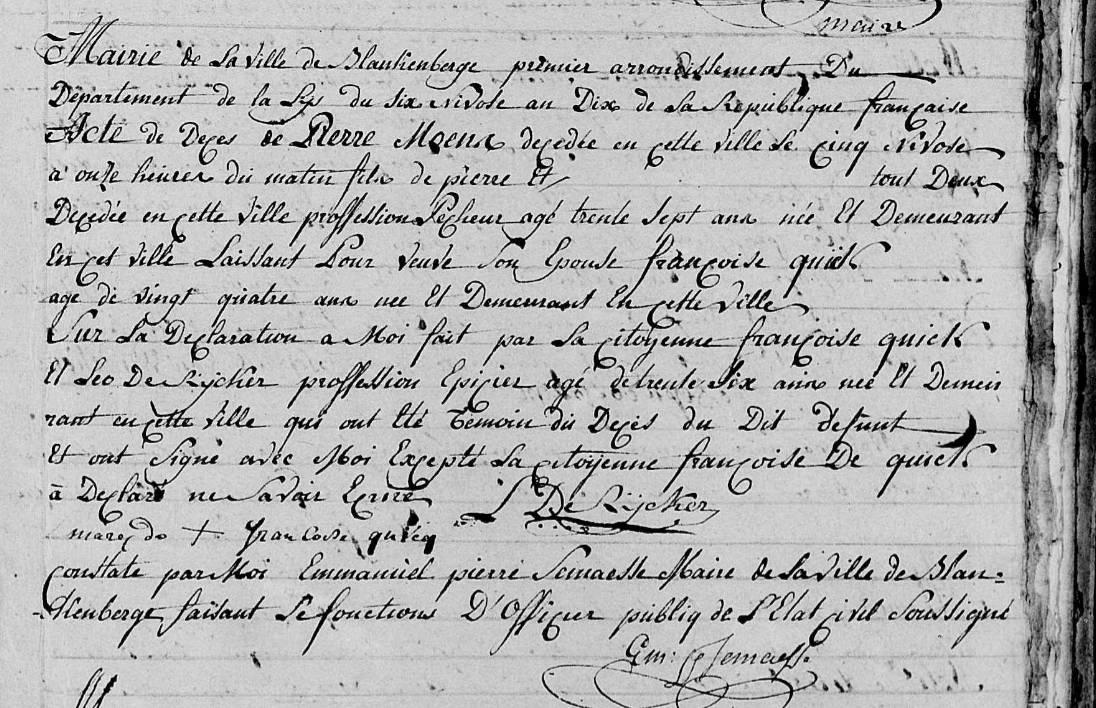 maire
Mairie de La Ville de Blankenberge premier arrondissement Du
Departement de la Lys du six Nivose an Dix de La Republique française
Acte de Deçes de Pierre Moens deçedée en çette ville Le çinq Nivose
a onze heures du matin fils de pierre Et tout Deux
Deçedée en çette Ville proffession Pêcheur agé trente sept ans née Et Demeurant
En çet ville Laissant Pour Veuve Son Epouse françoise quick
age de vingt quatre ans nee Et Demeurant En çette Ville
Sur La Deçlaration a Moi fait par La çitoÿenne françoise quick
Et Leo De Rÿcker proffession Epiçier agé de trente Six ans neé Et Demeu
rant en çette Ville qui ont Eté Temoin du Deçes du Dit defunt
Et ont Signé avec Moi Excepté La çitoÿenne françoise De quick
à Deçlaré ne Savoir Ecrire L De Rÿcker
marq do + françoise quicq
Constaté par Moi Emmanuel pierre Semaesse Maire de La Ville de Blan=
kenberge faisant Le fonctions D'Offiçier publiq de L'Etat çivil Soussigné
Em: P Semaesse